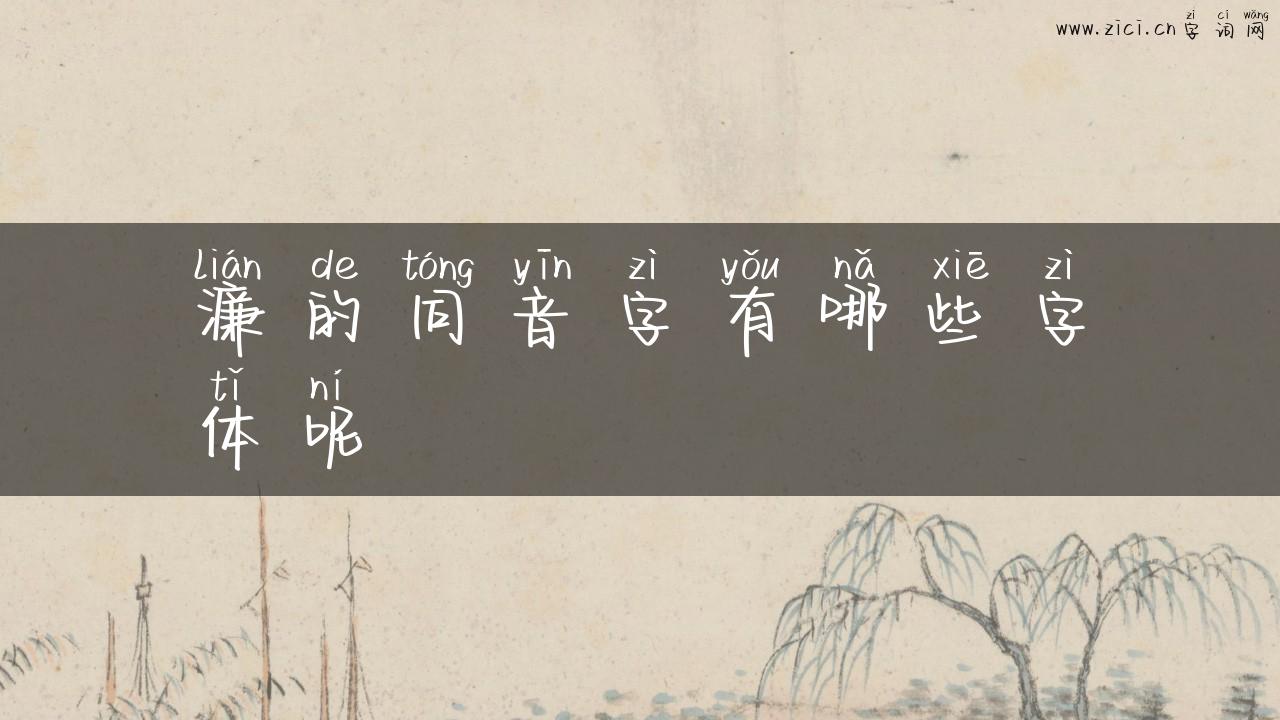 www.zici.cn 字词网
zì cí wǎng
lián de tóng yīn zì yǒu nǎ xiē zì
濂的同音字有哪些字
tǐ ní
体呢